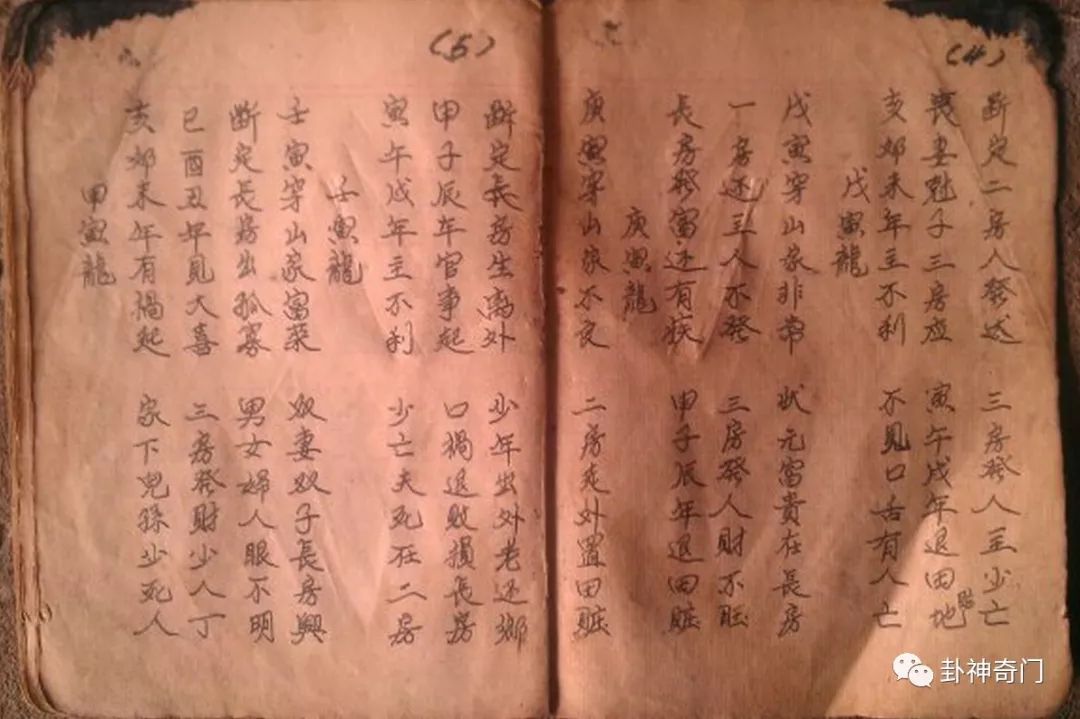 (4)
断定二房人發达 三房發人主少亡
丧妻尅子三房应 寅午戌年退田地
亥夘未年主不利 不見口舌有人亡
戊寅龍
戊寅穿山家非常 状元富貴在長房
一房还主人不發 三房發人財不旺
長房發富还有疾 甲子辰年退田賍
庚寅龍
庚寅穿山家不良 二房走外置田賍
(5)
断定長房生离外 少年出外老还鄉
甲子辰年官事起 口禍退敗損長房
寅午戌年主不利 少亡夫死在二房
壬寅龍
壬寅穿山家富荣 奴妻奴子長房興
断定長房出孤寡 男女婦人眼不明
巳酉丑年見大喜 三房發財少人丁
亥夘未年有禍起 家下児孫少死人
甲寅龍
卦神奇门